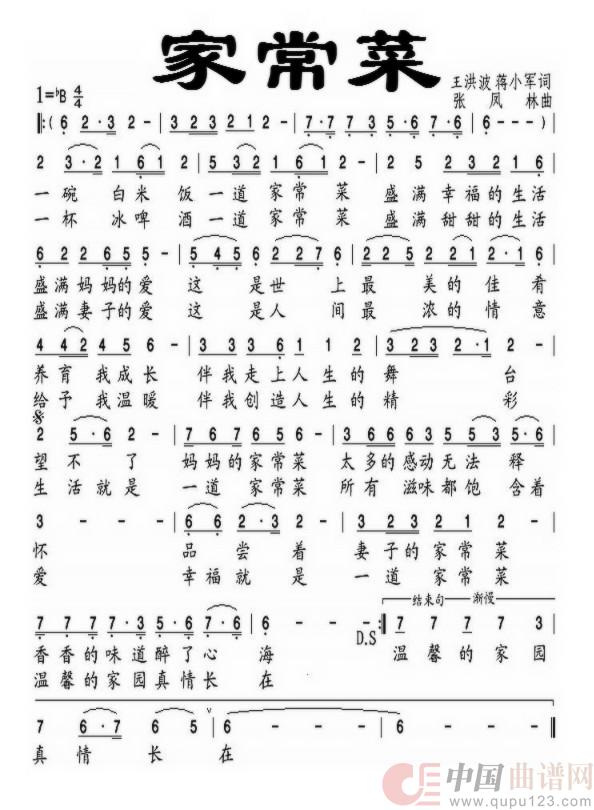 家常菜
1=♭B 4/4
王洪波 蒋小军词
张凤林曲
‖:( 6 2·3 2 - | 3 2 3 2 1 2 | 7·7 7 3 5·6 | 7·6 6 | 6 - - ) |
2 3·2 1 6 1 | 2 3 2 1 6 2 | 2 3 2 1 2 1 6 |
一碗 白米 饭一道 家常 菜 盛满 幸福的生活
一杯 冰啤 酒一道 家常 菜 盛满 甜甜的生活
6 2 2 6 5 5 - | 5 4 5 6 2 2 7 6 | 2 2 5 2 2 1 2 6 |
盛满妈妈的爱 这 是世 上最 美的佳肴
盛满妻子的爱 这 是人 间最 浓的情意
4 4 2 4 5 6 - | 3 3 3 6 1 1 2 | 3 2 3 2·1 2 - |
养育 我成长 伴我走上人生的舞 台
给予 我温暖 伴我创造人生的精 彩
𝄋
2 5·6 2 - | 7 6 7 6 5 6 | 3 6 6 6 5 3 5·6 |
望不了 妈妈的家常菜 太多的感动无法 释
生活就是 一道 家常菜 所有 滋味都饱 含着
3 - - - | 6 6 2·3 3 | 2 2 3 2 3 2 |
怀 品尝着 妻子的家常菜
爱 幸福就是 一道 家常菜
7 7 7 7 3 5 6 7·6 | 6 - - - :‖ 7 7 7 7 3 |
结束句 渐慢
D.S
香香的味道醉了心 海 温馨的家园
温馨的家园真情长 在
7 6·7 6 5 ∨ | 6 - - - | 6 - - - ‖
真情 长 在
中国曲谱网
www.qupu123.com